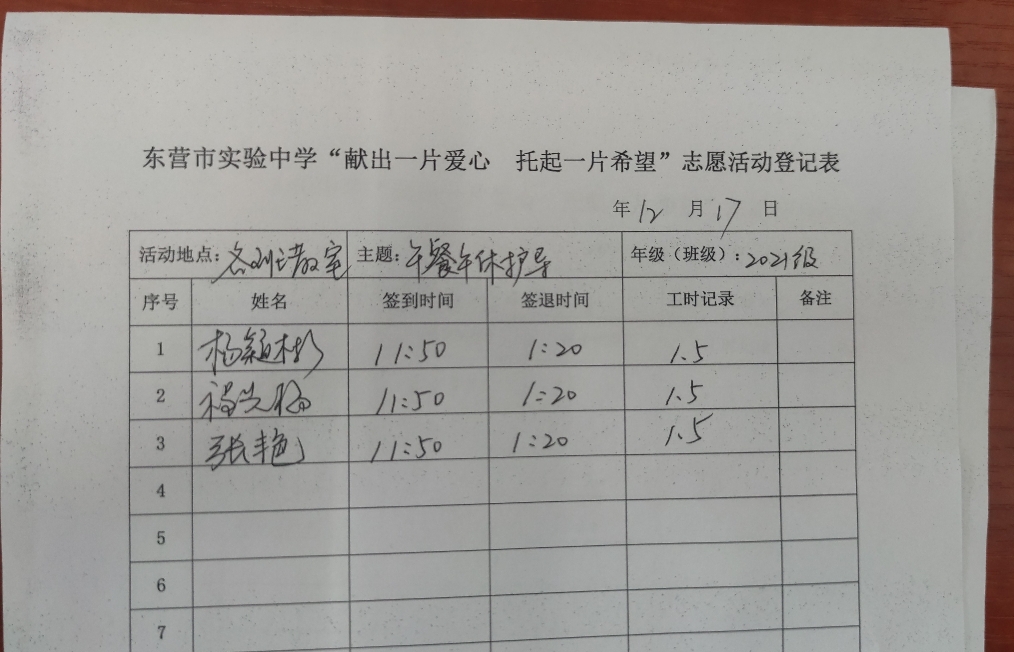 东营市实验中学“献出一片爱心 托起一片希望”志愿活动登记表
年12月17日
活动地点：各班教室 主题：午餐午休护导 年级（班级）：2021级
序号 姓名 签到时间 签退时间 工时记录 备注
1 杨颖彬 11:50 1:20 1.5
2 11:50 1:20 1.5
3 张艳 11:50 1:20 1.5
4
5
6
7